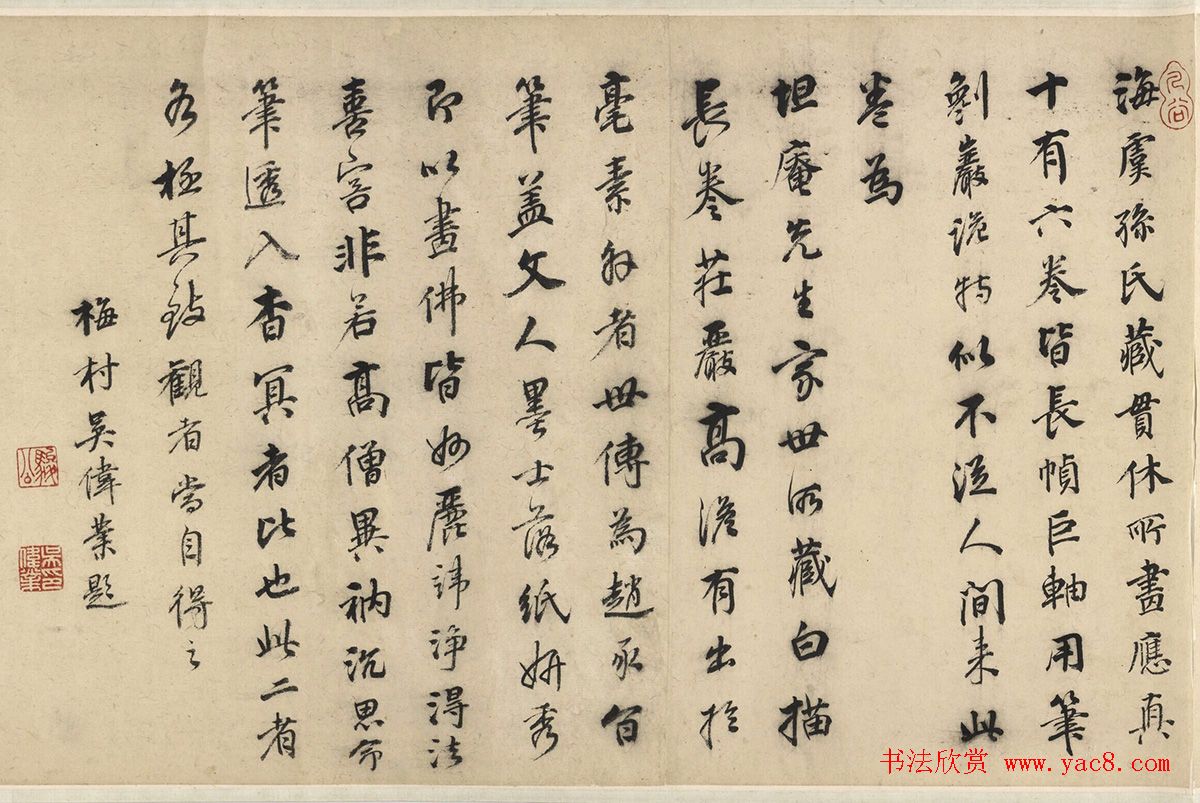 海虞孫氏藏貫休所畫應真
十有六卷皆長幀巨軸用筆
劖巖詭特似不從人間来此
卷為
坦庵先生家世所藏白描
長卷莊嚴高澹有出於
毫素外者世傳為趙承旨
筆盖文人墨士落紙妍秀
即以畫佛皆妙麗諱淨得法
喜写非若高僧異衲沉思命
筆透入杳冥者比也此二者
各極其致觀者當自得之
梅村吳偉業題
駿公
吳偉業印
书法欣赏 www.yac8.com